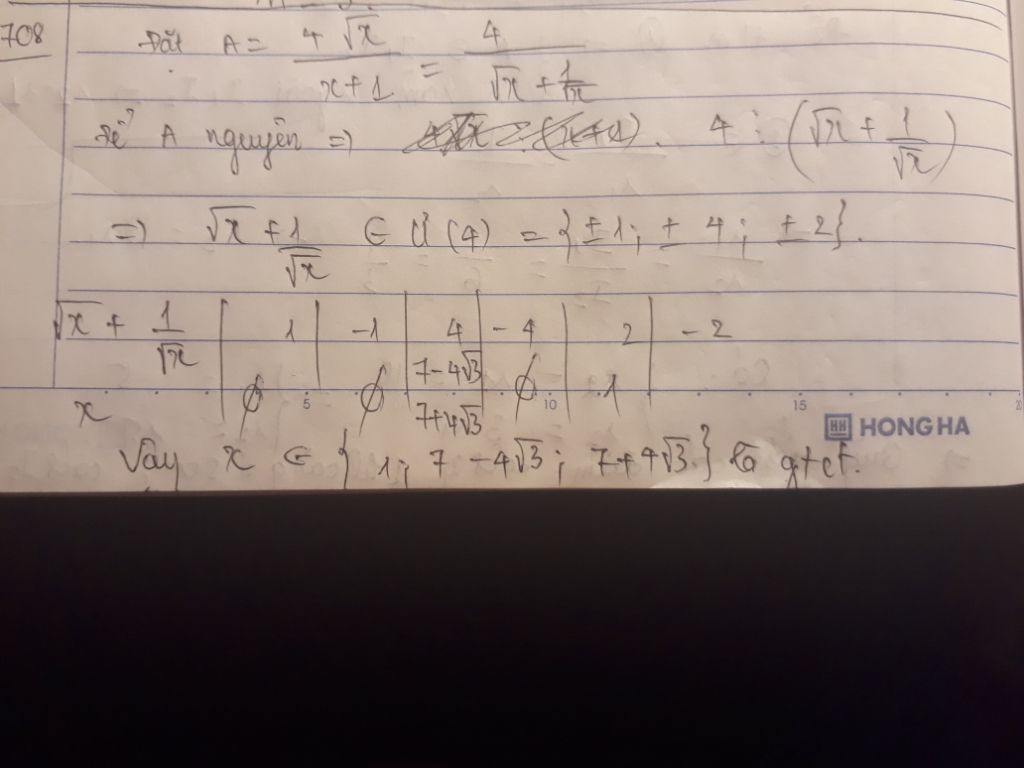 708 Đặt A = 4√x / x+1 = 4 / √x + 1/√x
Để A nguyên => 4 ⋮ (√x + 1/√x)
=> √x + 1/√x ∈ Ư(4) = {±1; ± 4; ± 2}.
√x + 1/√x | 1 | -1 | 4 | - 4 | 2 | - 2
x | ∅ | ∅ | 7-4√3 7+4√3 | ∅ | 1
5 10 15
HH HONG HA
Vậy x ∈ {1; 7 - 4√3; 7+4√3} là gtct.